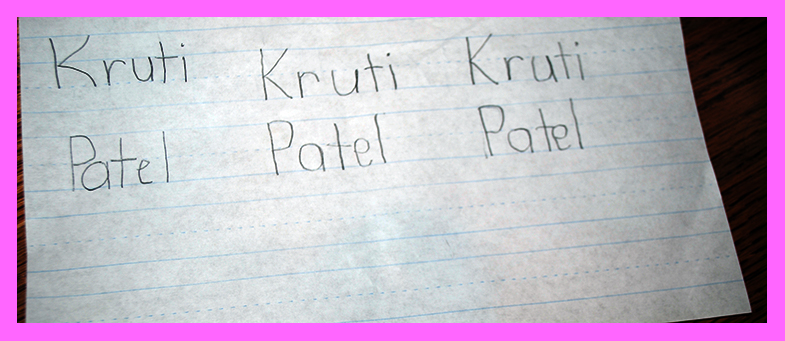 Kruti Kruti Kruti
Patel Patel Patel